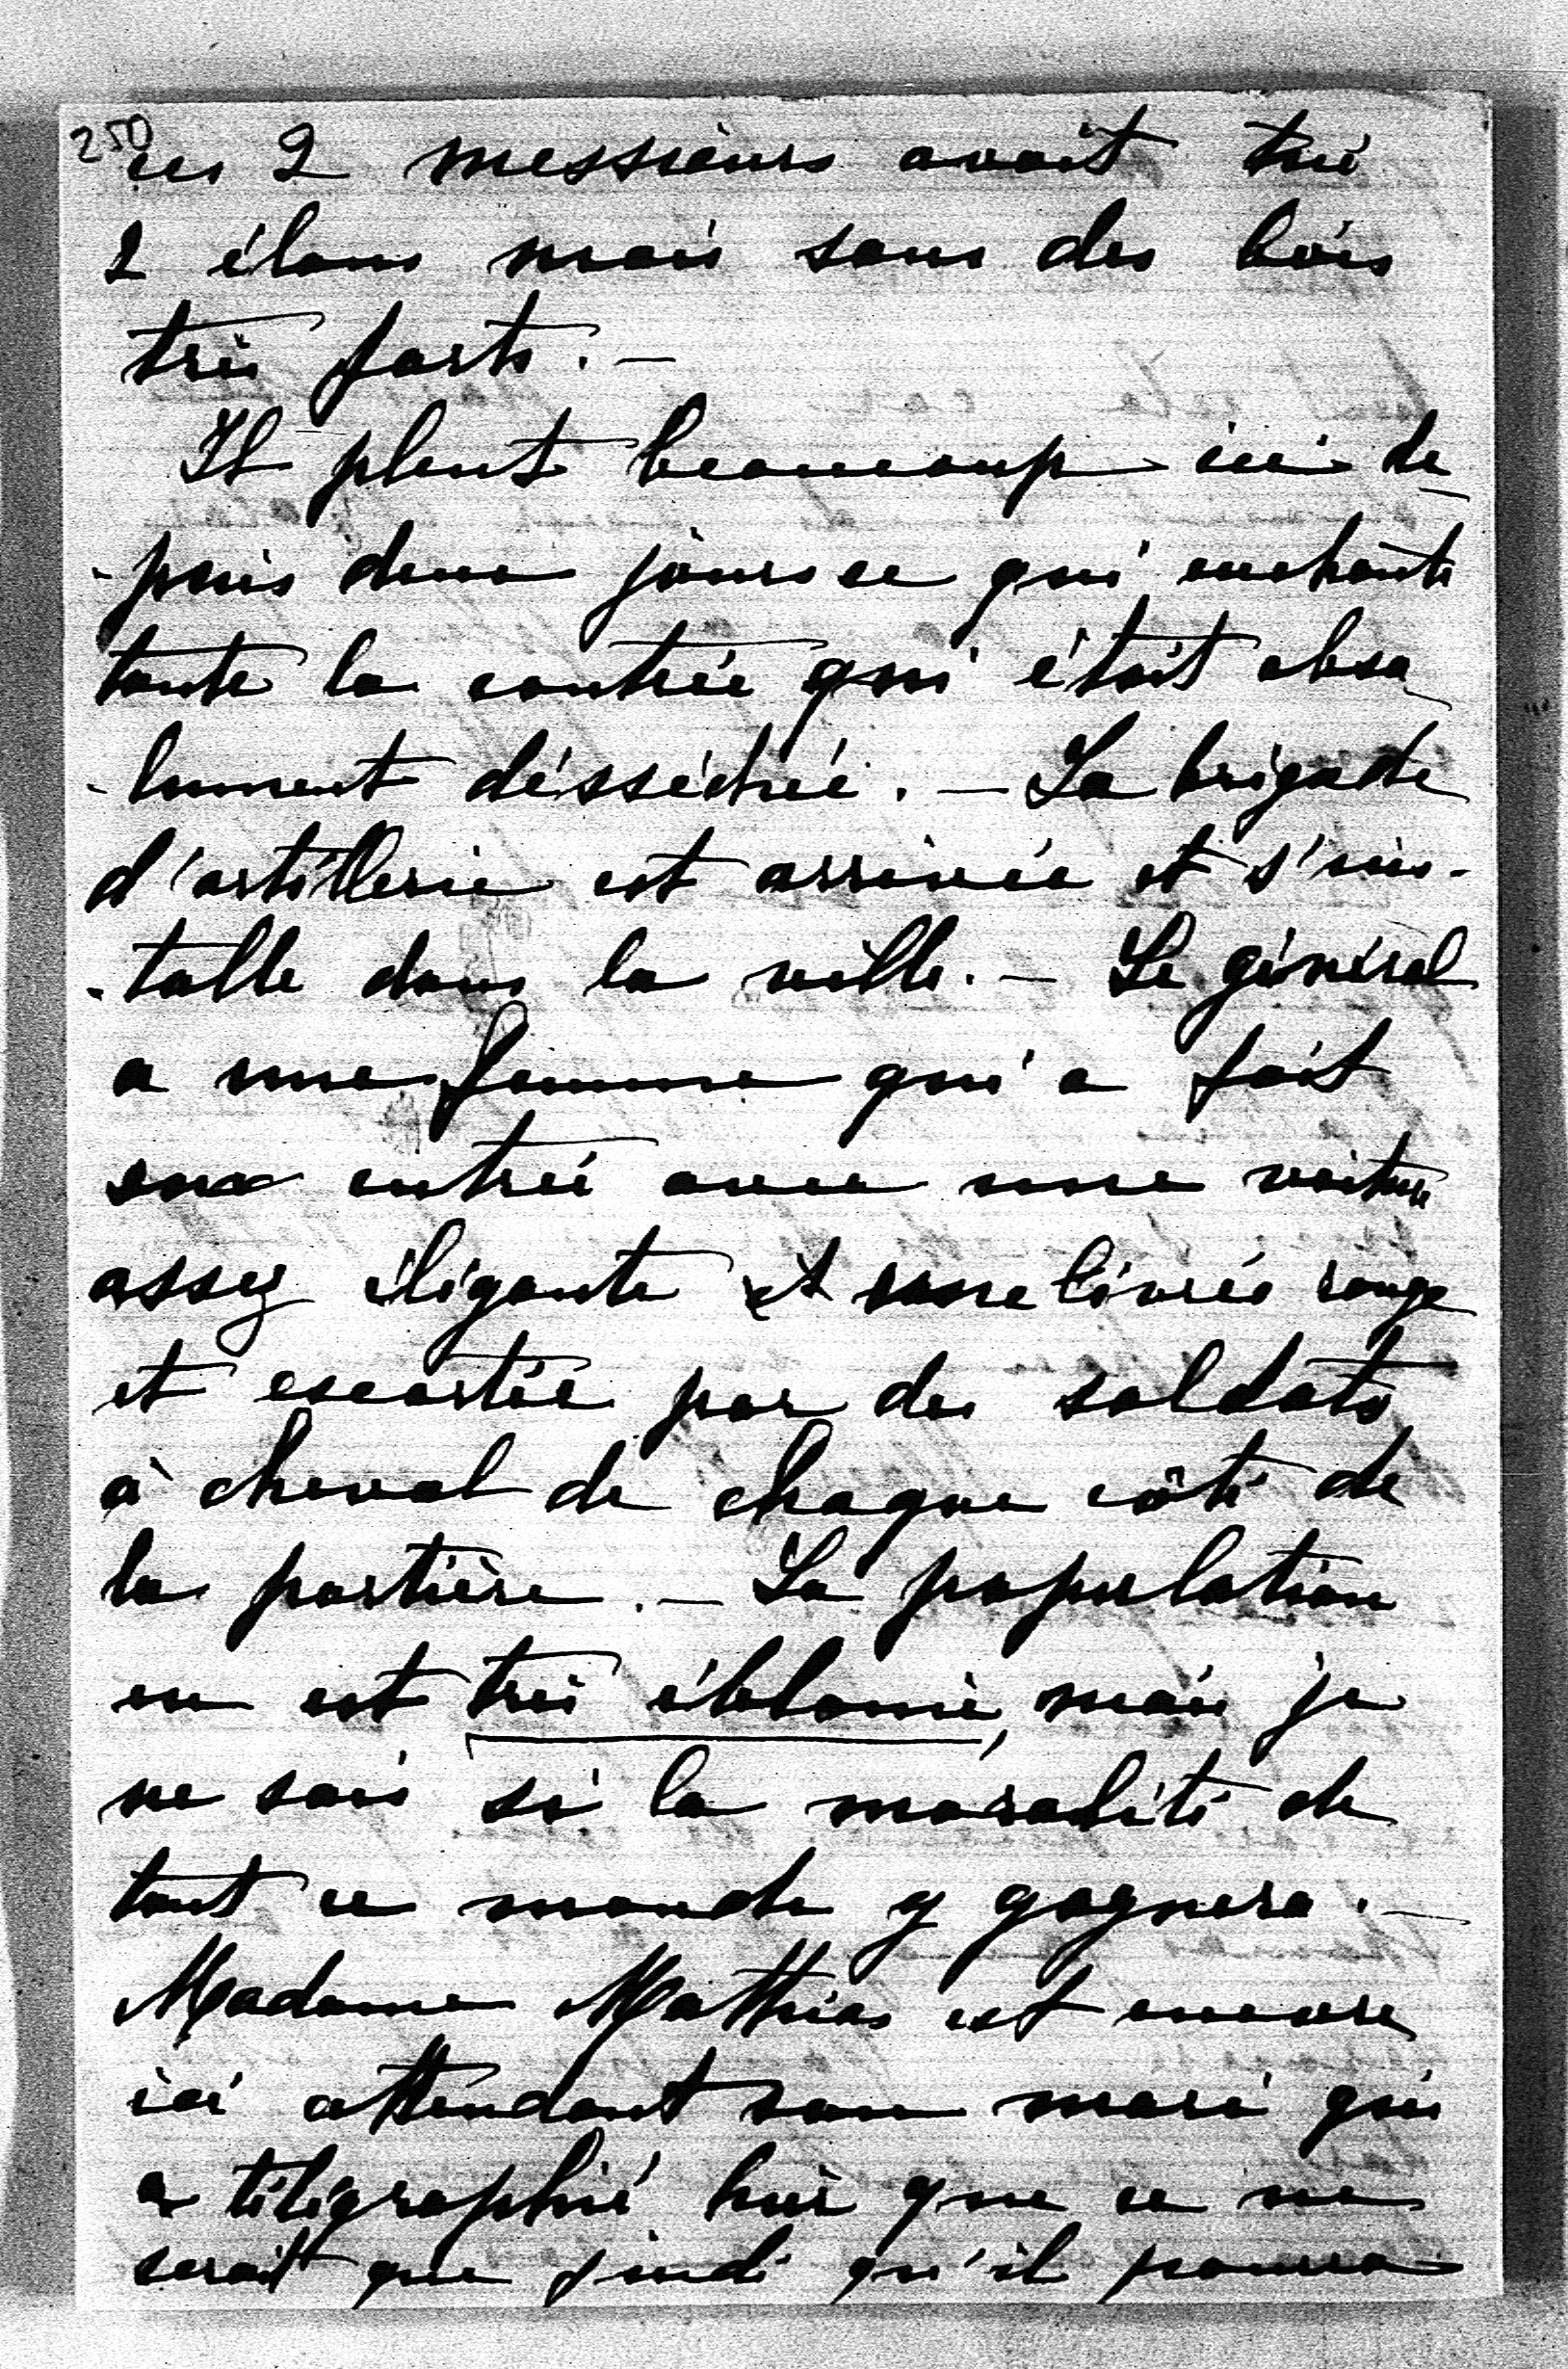 250
ces 2 messieurs avait tué
2 élans mais sans des bois
très forts. —
Il pleut beaucoup ici de
-puis deux jours ce qui enchante
toute la contrée qui était abso
-lument désséchée. — La brigade
d'artillerie est arrivée et s'ins-
-talle dans la ville. — Le général
a une femme qui a fait
son entrée avec une voiture
assez élégante et une livrée rouge
et escortée par des soldats
à cheval de chaque côté de
la portière. — La population
en est très éblouie, mais je
ne sais si la moralité de
tout ce monde y gagnera. —
Madame Mathias est encore
ici attendant son mari qui
a télégraphié hier que ce ne
serait que jeudi qu'il pourra